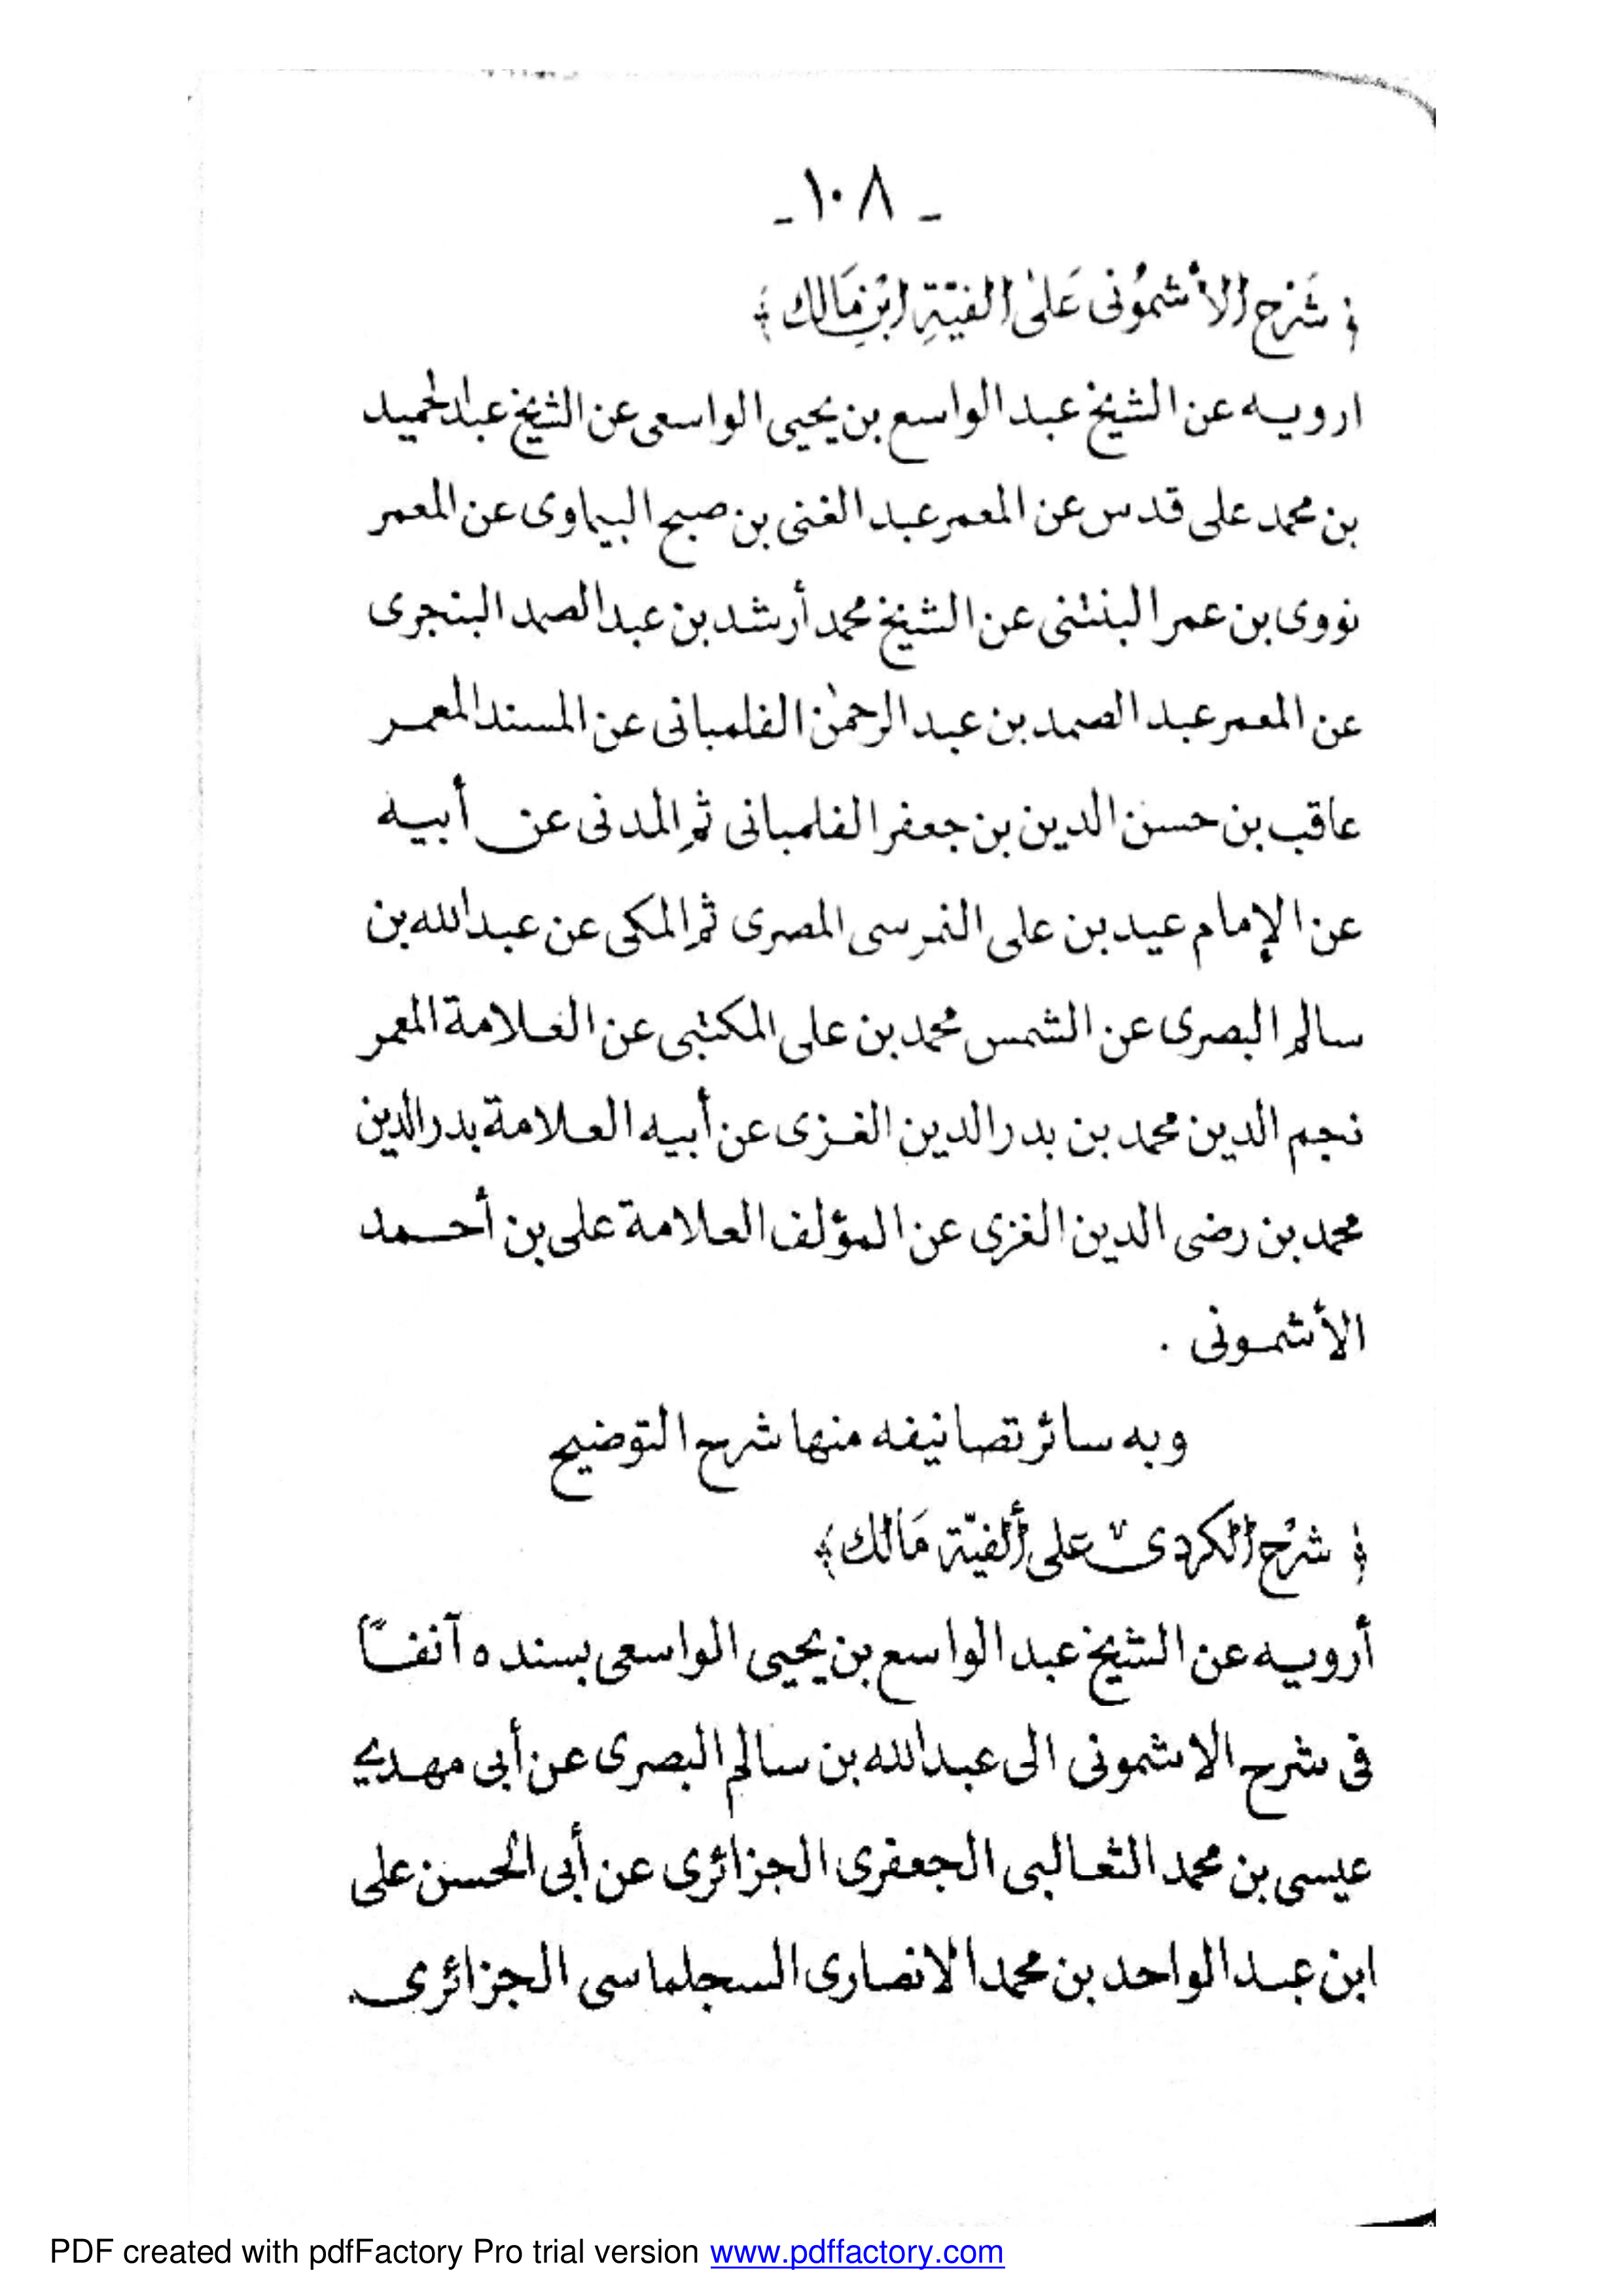 - ١٠٨ -
﴿ شَرْح الأشمُونى عَلىٰ الفيّةِ ابْنِ مَالك ﴾
ارويه عن الشيخ عبد الواسع بن يحيى الواسعى عن الشيخ عبد الحميد
بن محمد على قدس عن المعمر عبد الغنى بن صبح البيماوى عن المعمر
نووى بن عمر البنتنى عن الشيخ محمد أرشد بن عبد الصمد البنجرى
عن المعمر عبد الصمد بن عبد الرحمٰن الفلمبانى عن المسند المعمر
عاقب بن حسن الدين بن جعفر الفلمبانى ثم المدنى عن أبيه
عن الإمام عيد بن على النمرسى المصرى ثم المكى عن عبد الله بن
سالم البصرى عن الشمس محمد بن على المكتبى عن العلامة المعمر
نجم الدين محمد بن بدر الدين الغزى عن أبيه العلامة بدر الدين
محمد بن رضى الدين الغزى عن المؤلف العلامة على بن أحمد
الأشمونى .
وبه سائر تصانيفه منها شرح التوضيح
﴿ شرْح الكردى على ألفيّة مَالك ﴾
أرويه عن الشيخ عبد الواسع بن يحيى الواسعى بسنده آنفاً
فى شرح الاشمونى الى عبد الله بن سالم البصرى عن أبى مهدي
عيسى بن محمد الثعالبى الجعفرى الجزائرى عن أبى الحسن على
ابن عبد الواحد بن محمد الانصارى السجلماسى الجزائرى
PDF created with pdfFactory Pro trial version www.pdffactory.com